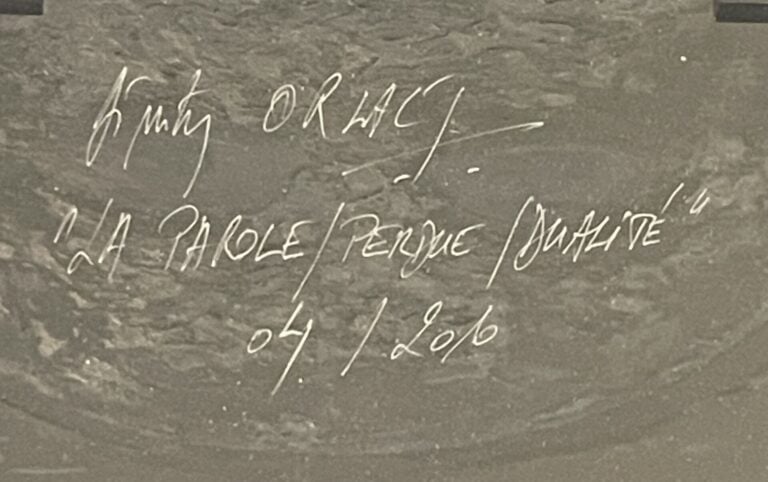 Jimty ORLAC
"LA PAROLE/PERDUE/DUALITÉ"
04/2016